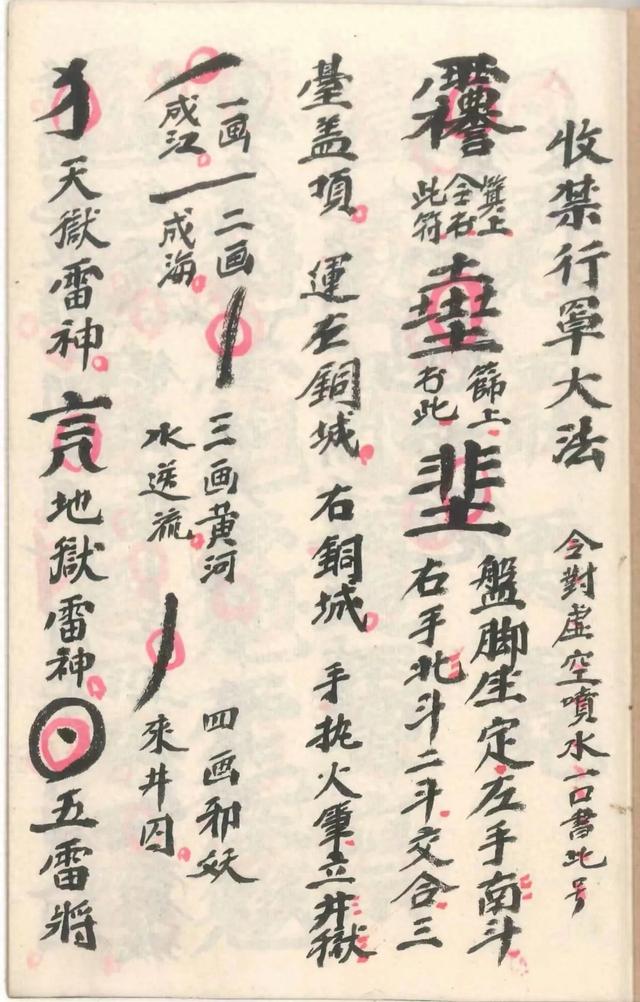 收禁行罩大法
令對虛空噴水一口書此号
算上
令右
此符
篩上
右此
盤脚坐定左手南斗
右手北斗二斗交合三
臺盖項 運左銅城 右銅城 手执火筆立井獄
一画
成江
二画
成海
三画黄河
水逆流
四画邪妖
來井囚
犭天獄雷神 言 地獄雷神 五雷將